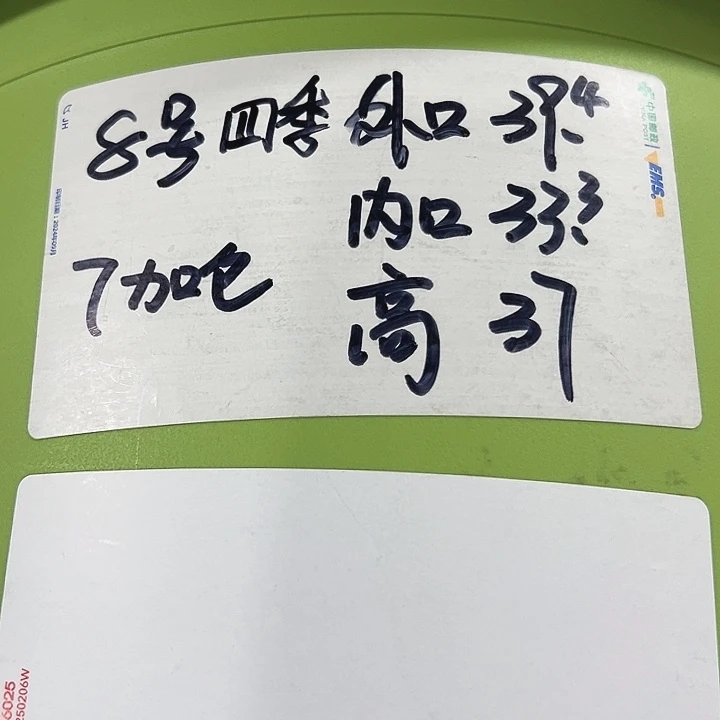 8号 四季 外口 39.4
内口 33.3
7加仑 高 37
中国邮政
EMS
JH
6025
250206W